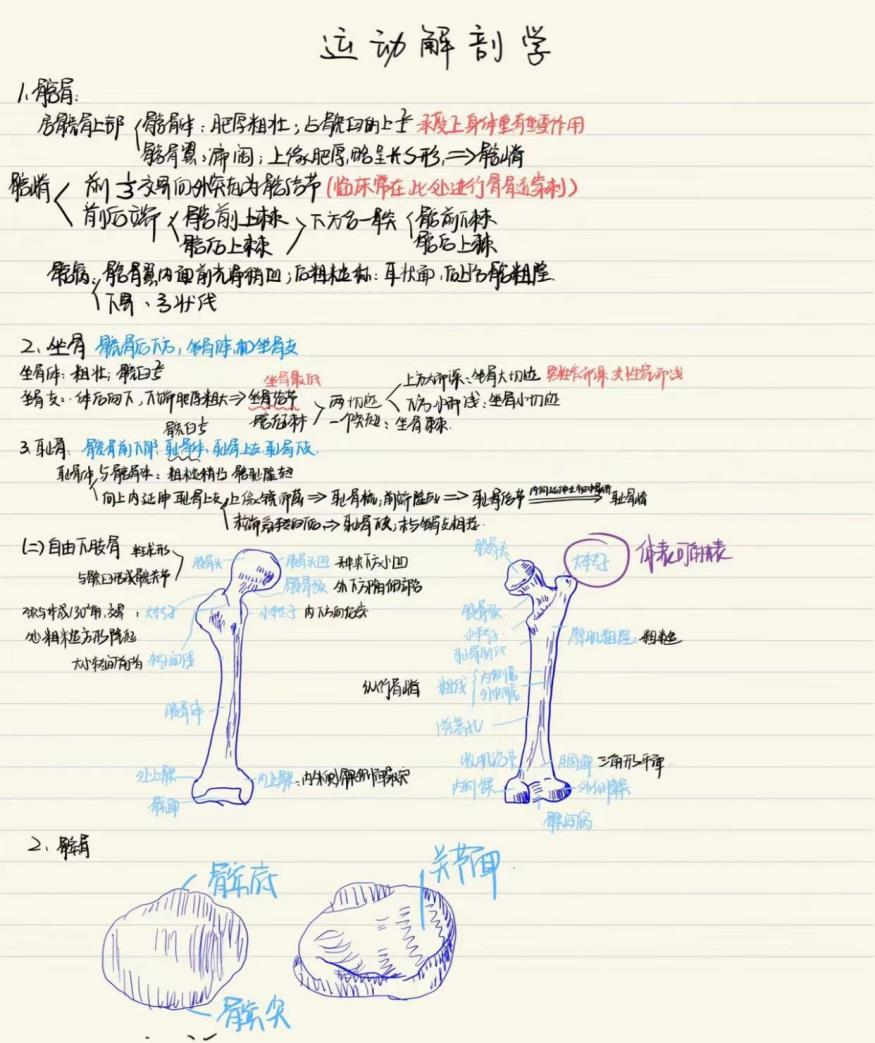 运动解剖学
1.髂骨:
居髋骨上部
髂骨体:肥厚粗壮;占髋臼的上 承受上身体重有重要作用
髂骨翼:扁阔;上缘肥厚,略呈长S形,⇒髂嵴
髂嵴
前1/3交界向外突起为髂结节(临床常在此处进行骨髓穿刺)
前后端
髂前上棘
髂后上棘
下方各一骨突
髂前下棘
髂后上棘
髂窝:髂骨翼内面前光滑稍凹;后粗糙称:耳状面,后上方髂粗隆.
下界:弓状线
2、坐骨 髋骨后下方,坐骨体和坐骨支
坐骨体:粗壮;髋臼
坐骨最低
坐骨支:体后向下,下端肥厚粗大⇒坐骨结节
髂后棘
两切迹
一突起:坐骨棘.
上方大而深:坐骨大切迹
下方小而浅:坐骨小切迹
髋臼1/5
3.耻骨 髋骨前下部,耻骨体,耻骨上支,耻骨下支.
耻骨体与髂骨体:粗糙稍凸 髂耻隆起
向上内延伸耻骨上支
上缘锐而薄⇒耻骨梳;前端隆起⇒耻骨结节 耻骨嵴
⇒耻骨下支;与坐骨支相接.
(二)自由下肢骨
粗球形
与髋臼形成髋关节
股骨头
股骨头凹
股骨颈
大转子
小转子 内下方后突
粗糙方形隆起
转子间线
股骨体
外上髁
内上髁
髌面
股骨头
大转子
体表可触摸
股骨颈
小转子
耻骨肌线
臀肌粗隆:粗糙
纵行骨嵴
粗线
内侧唇
外侧唇
滋养孔
收肌结节
腘面 三角形平坦
内侧髁
外侧髁
髁间窝
2、髌骨
髌底
髌尖
关节面